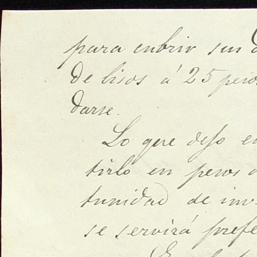 para cubrir sus
de lisos á 25 pesos
darse.
Lo que dejo en
tirlo en pesos
tunidad de inv
se servirá prefe